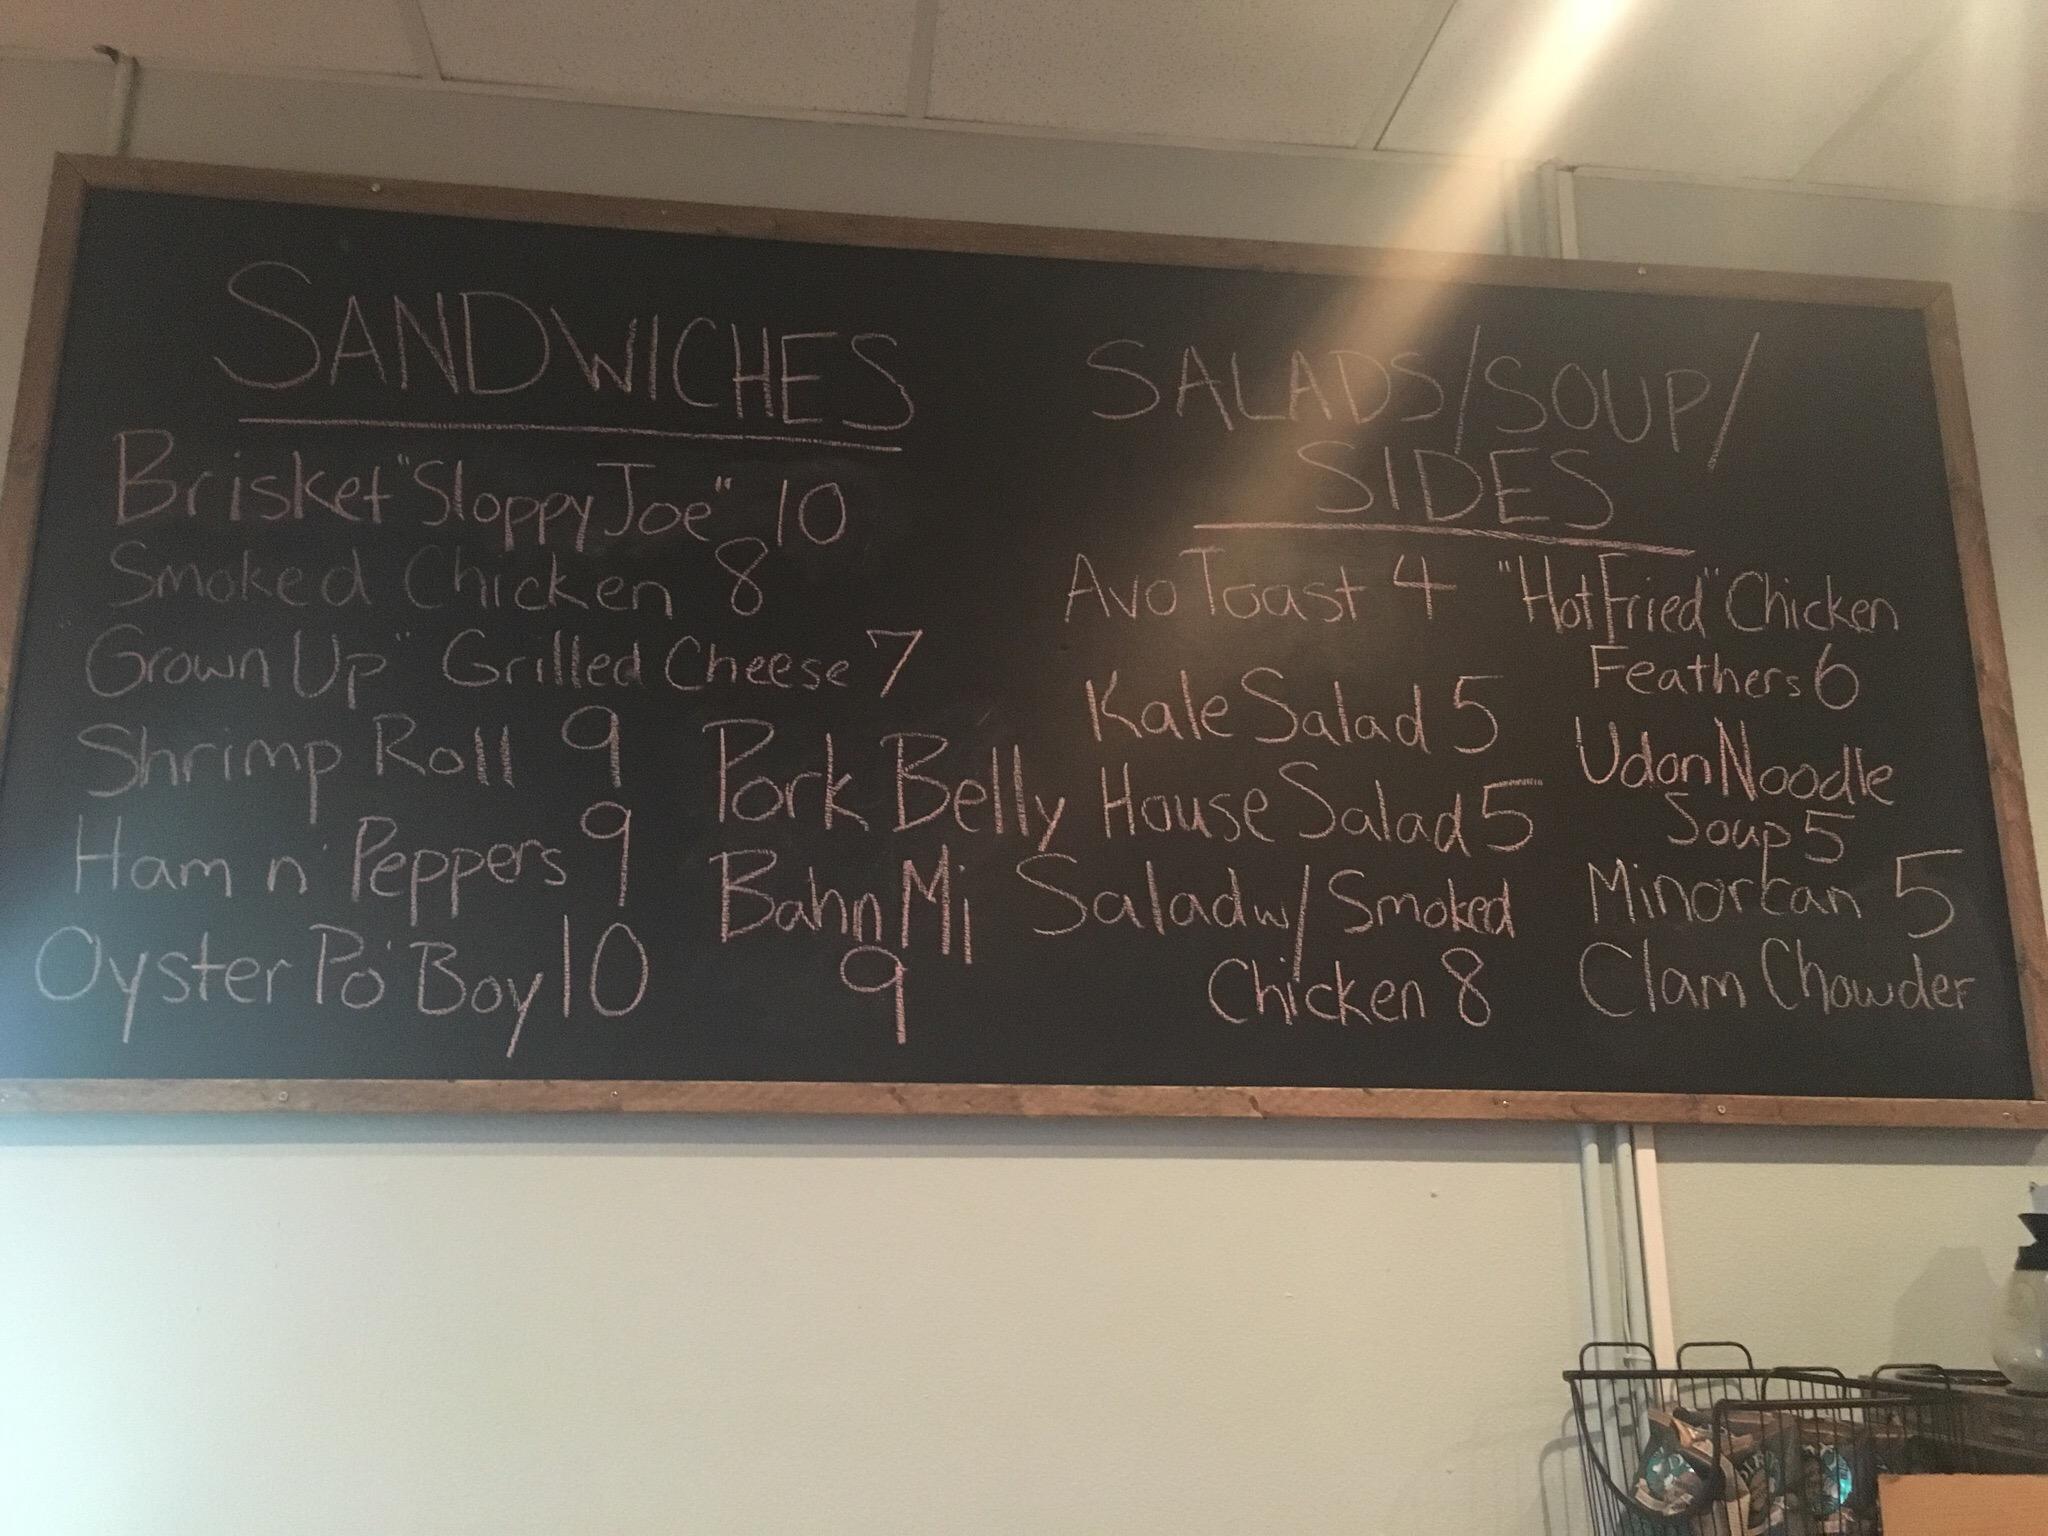 SANDWICHES
Brisket "Sloppy Joe" 10
Smoked Chicken 8
"Grown Up" Grilled Cheese 7
Shrimp Roll 9
Ham n' Peppers 9
Oyster Po' Boy 10
Pork Belly
Bahn Mi
9
SALADS/SOUP/
SIDES
Avo Toast 4
Kale Salad 5
House Salad 5
Salad w/ Smoked
Chicken 8
"Hot Fried" Chicken
Feathers 6
Udon Noodle
Soup 5
Minorcan 5
Clam Chowder